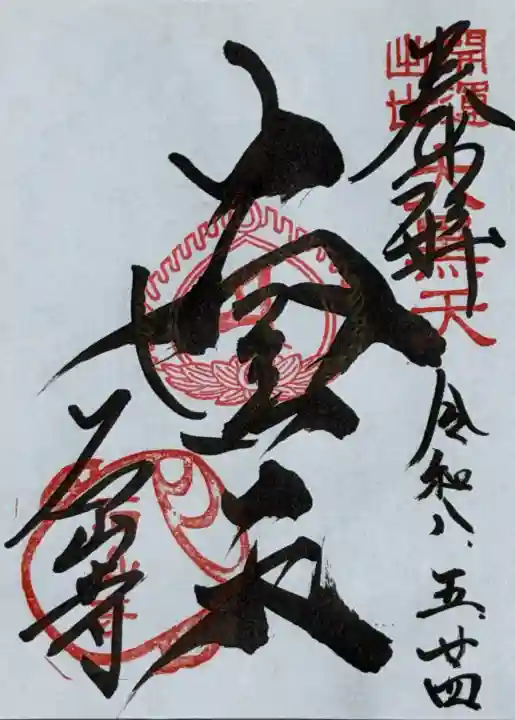 開運
出世
大黒天
奉拝
令和八.五.廿四
大黒天
石山寺